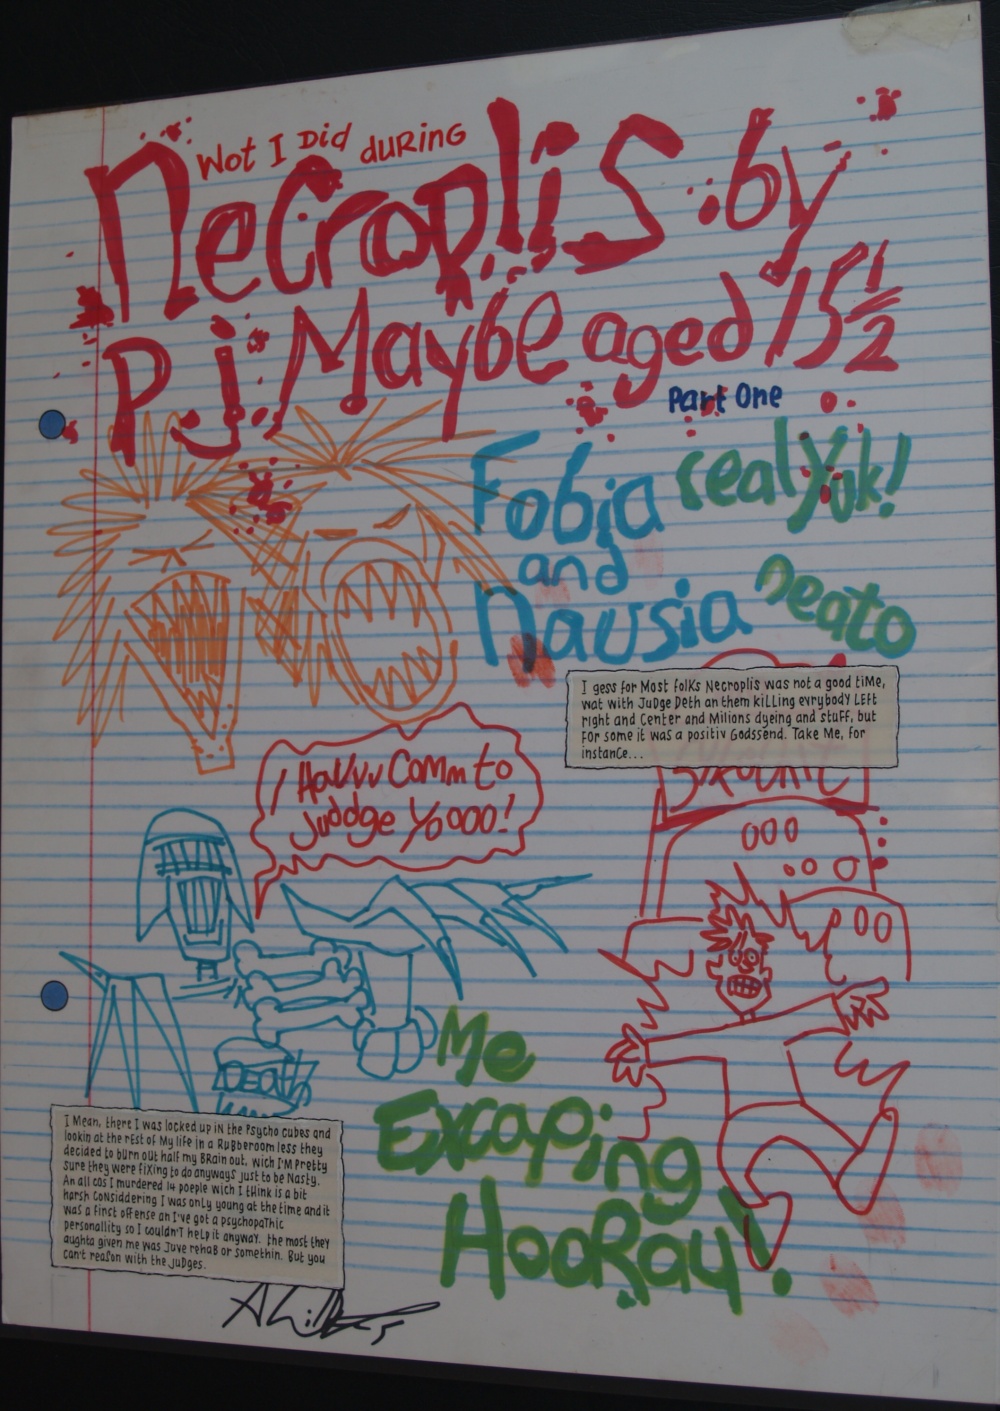 Wot I Did duRing
NecropliS by
PJ Maybe aged 15 1/2
Part One
Fobia realYuk!
and
Nausia neato
I gess for Most folKs Necroplis was not a good tiMe,
wat with JuDge Deth an theM kiLLing evrybodY LEft
right and Center and Milions dyeing and stuFF, but
For some it was a positiv GodsSend. Take Me, for
instance...
HaVvv Comm to
Juddge Yoooo!
DEATh
Me
Excaping
HooRay!
I Mean, there I was locked up in the Psycho cubes and
lookin at the rEst of My life in a RuBBeroom less they
decided to burn out half my BRain out, wich I'M Pretty
sure they were fixing to do anyways just to be Nasty.
An all cos I murdered 14 poeple wich I tHink is a bit
harsh ConsidderIng I was only young at the time and it
was a first offense an I've got a psychopaThic
personallity so I couldn'T heLp it anyway. the most they
aughta given me was Juve rehaB or somethin. But you
can't reaSon with the juDges.